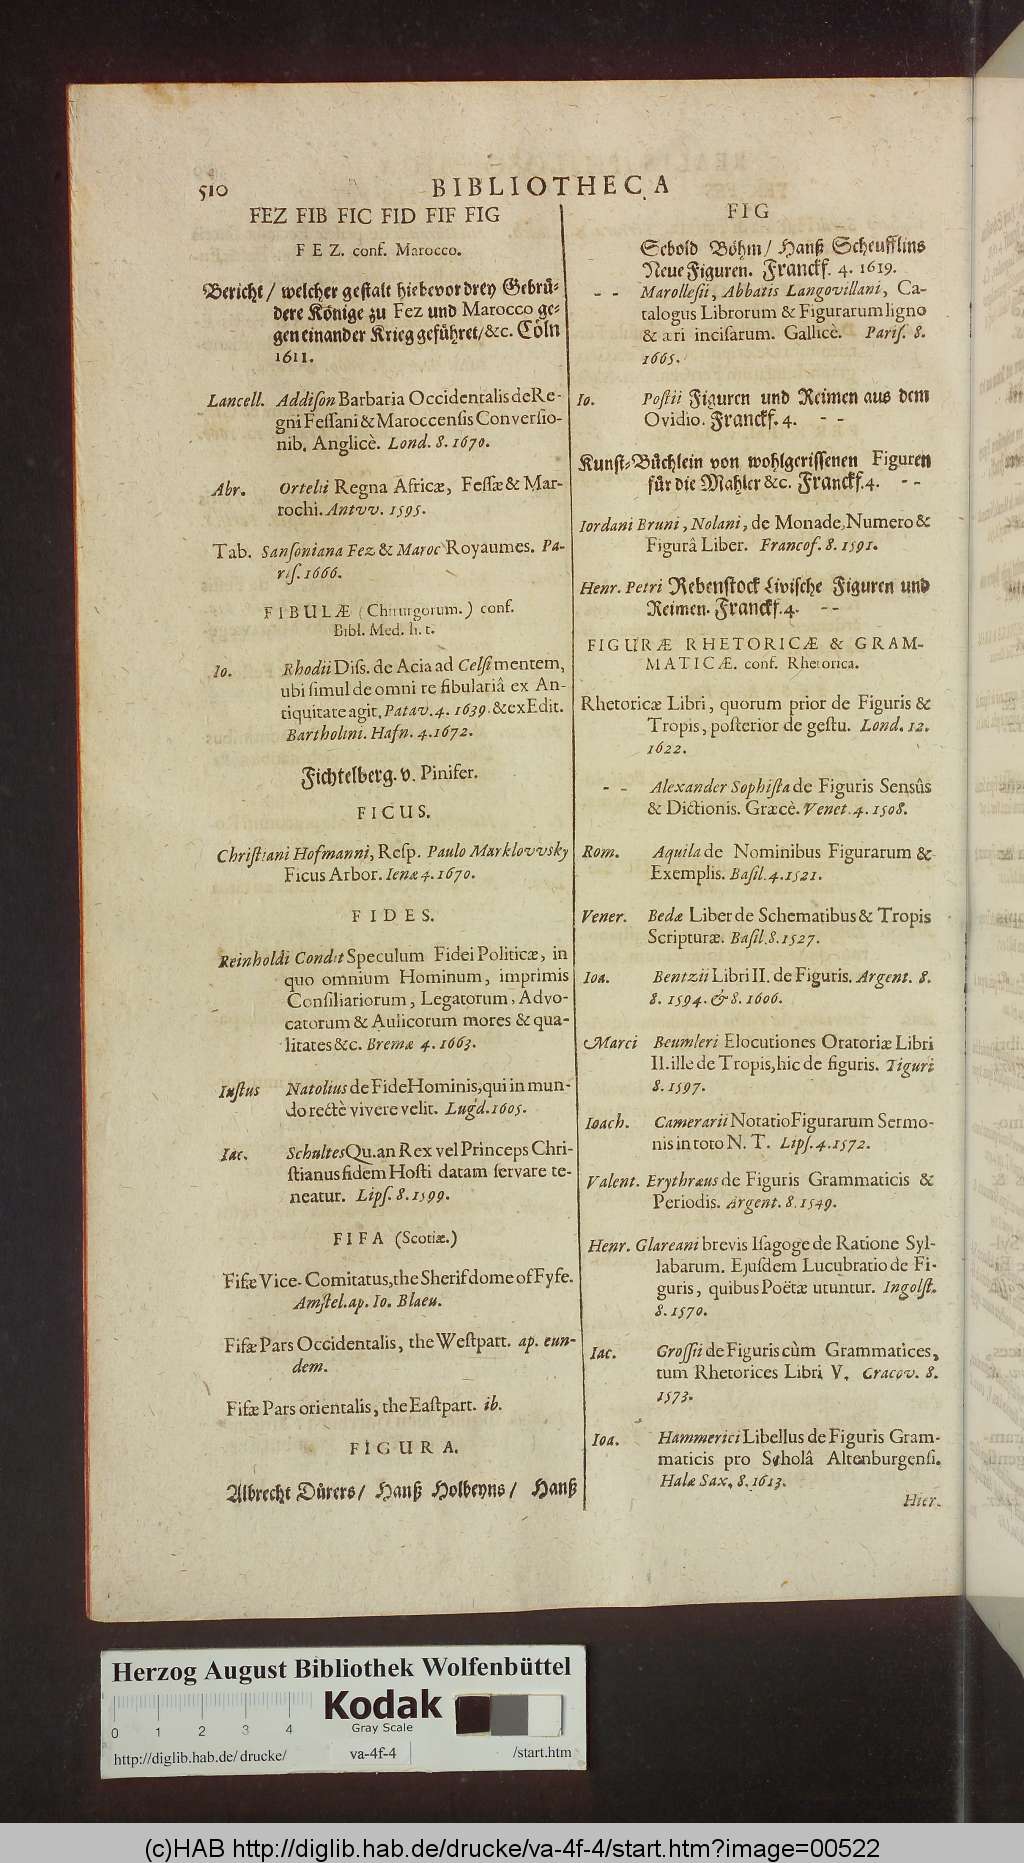 510
BIBLIOTHECA
FEZ FIB FIC FID FIF FIG
FEZ. conf. Marocco.
Bericht / welcher gestalt hiebevor drey Gebrü-
dere Könige zu Fez und Marocco ge-
gen einander Krieg geführet/ &c. Cöln
1611.
Lancell. Addiſon Barbaria Occidentalis de Re-
gni Feſſani & Maroccenſis Converſio-
nib. Anglicè. Lond. 8. 1670.
Abr. Ortelii Regna Africæ, Feſſæ & Mar-
rochi. Antvv. 1595.
Tab. Sanſoniana Fez & Maroc Royaumes. Pa-
riſ. 1666.
FIBULÆ (Chirurgorum.) conf.
Bibl. Med. h. t.
Io. Rhodii Diſſ. de Acia ad Celſi mentem,
ubi ſimul de omni re fibulariâ ex An-
tiquitate agit. Patav. 4. 1639. & ex Edit.
Bartholini. Hafn. 4. 1672.
Fichtelberg. v. Pinifer.
FICUS.
Chriſtiani Hofmanni, Reſp. Paulo Marklovvsky
Ficus Arbor. Ienæ 4. 1670.
FIDES.
Reinholdi Condit Speculum Fidei Politicæ, in
quo omnium Hominum, imprimis
Conſiliariorum, Legatorum, Advo-
catorum & Aulicorum mores & qua-
litates &c. Bremæ 4. 1663.
Iuſtus Natolius de Fide Hominis, qui in mun-
do rectè vivere velit. Lugd. 1605.
Iac. Schultes Qu. an Rex vel Princeps Chri-
ſtianus fidem Hoſti datam ſervare te-
neatur. Lipſ. 8. 1599.
FIFA (Scotiæ.)
Fifæ Vice-Comitatus, the Sherifdome of Fyfe.
Amſtel. ap. Io. Blaeu.
Fifæ Pars Occidentalis, the Weſtpart. ap. eun-
dem.
Fifæ Pars orientalis, the Eaſtpart. ib.
FIGURA.
Albrecht Dürers/ Hanß Holbeyns/ Hanß
FIG
Sebold Böhm/ Hanß Scheufflins
Neue Figuren. Franckf. 4. 1619.
- - Marolleſii, Abbatis Langovillani, Ca-
talogus Librorum & Figurarum ligno
& æri inciſarum. Gallicè. Pariſ. 8.
1665.
Io. Poſtii Figuren und Reimen aus dem
Ovidio. Franckf. 4. - -
Kunst-Büchlein von wohlgerissenen Figuren
für die Mahler &c. Franckf. 4. - -
Iordani Bruni, Nolani, de Monade, Numero &
Figurâ Liber. Francof. 8. 1591.
Henr. Petri Rebenstock Livische Figuren und
Reimen. Franckf. 4. - -
FIGURÆ RHETORICÆ & GRAM-
MATICÆ. conf. Rhetorica.
Rhetoricæ Libri, quorum prior de Figuris &
Tropis, poſterior de geſtu. Lond. 12.
1622.
- - Alexander Sophiſta de Figuris Sensûs
& Dictionis. Græcè. Venet. 4. 1508.
Rom. Aquila de Nominibus Figurarum &
Exemplis. Baſil. 4. 1521.
Vener. Bedæ Liber de Schematibus & Tropis
Scripturæ. Baſil. 8. 1527.
Ioa. Bentzii Libri II. de Figuris. Argent. 8.
8. 1594. & 8. 1606.
Marci Beumleri Elocutiones Oratoriæ Libri
II. ille de Tropis, hic de figuris. Tiguri
8. 1597.
Ioach. Camerarii Notatio Figurarum Sermo-
nis in toto N. T. Lipſ. 4. 1572.
Valent. Erythræus de Figuris Grammaticis &
Periodis. Argent. 8. 1549.
Henr. Glareani brevis Iſagoge de Ratione Syl-
labarum. Ejuſdem Lucubratio de Fi-
guris, quibus Poëtæ utuntur. Ingolſt.
8. 1570.
Iac. Groſſii de Figuris cùm Grammatices,
tum Rhetorices Libri V. Cracov. 8.
1573.
Ioa. Hammerici Libellus de Figuris Gram-
maticis pro Scholâ Altenburgenſi.
Halæ Sax. 8. 1613.
Hier.
Herzog August Bibliothek Wolfenbüttel
Kodak
Gray Scale
0 1 2 3 4
http://diglib.hab.de/drucke/ va-4f-4 /start.htm
(c)HAB http://diglib.hab.de/drucke/va-4f-4/start.htm?image=00522